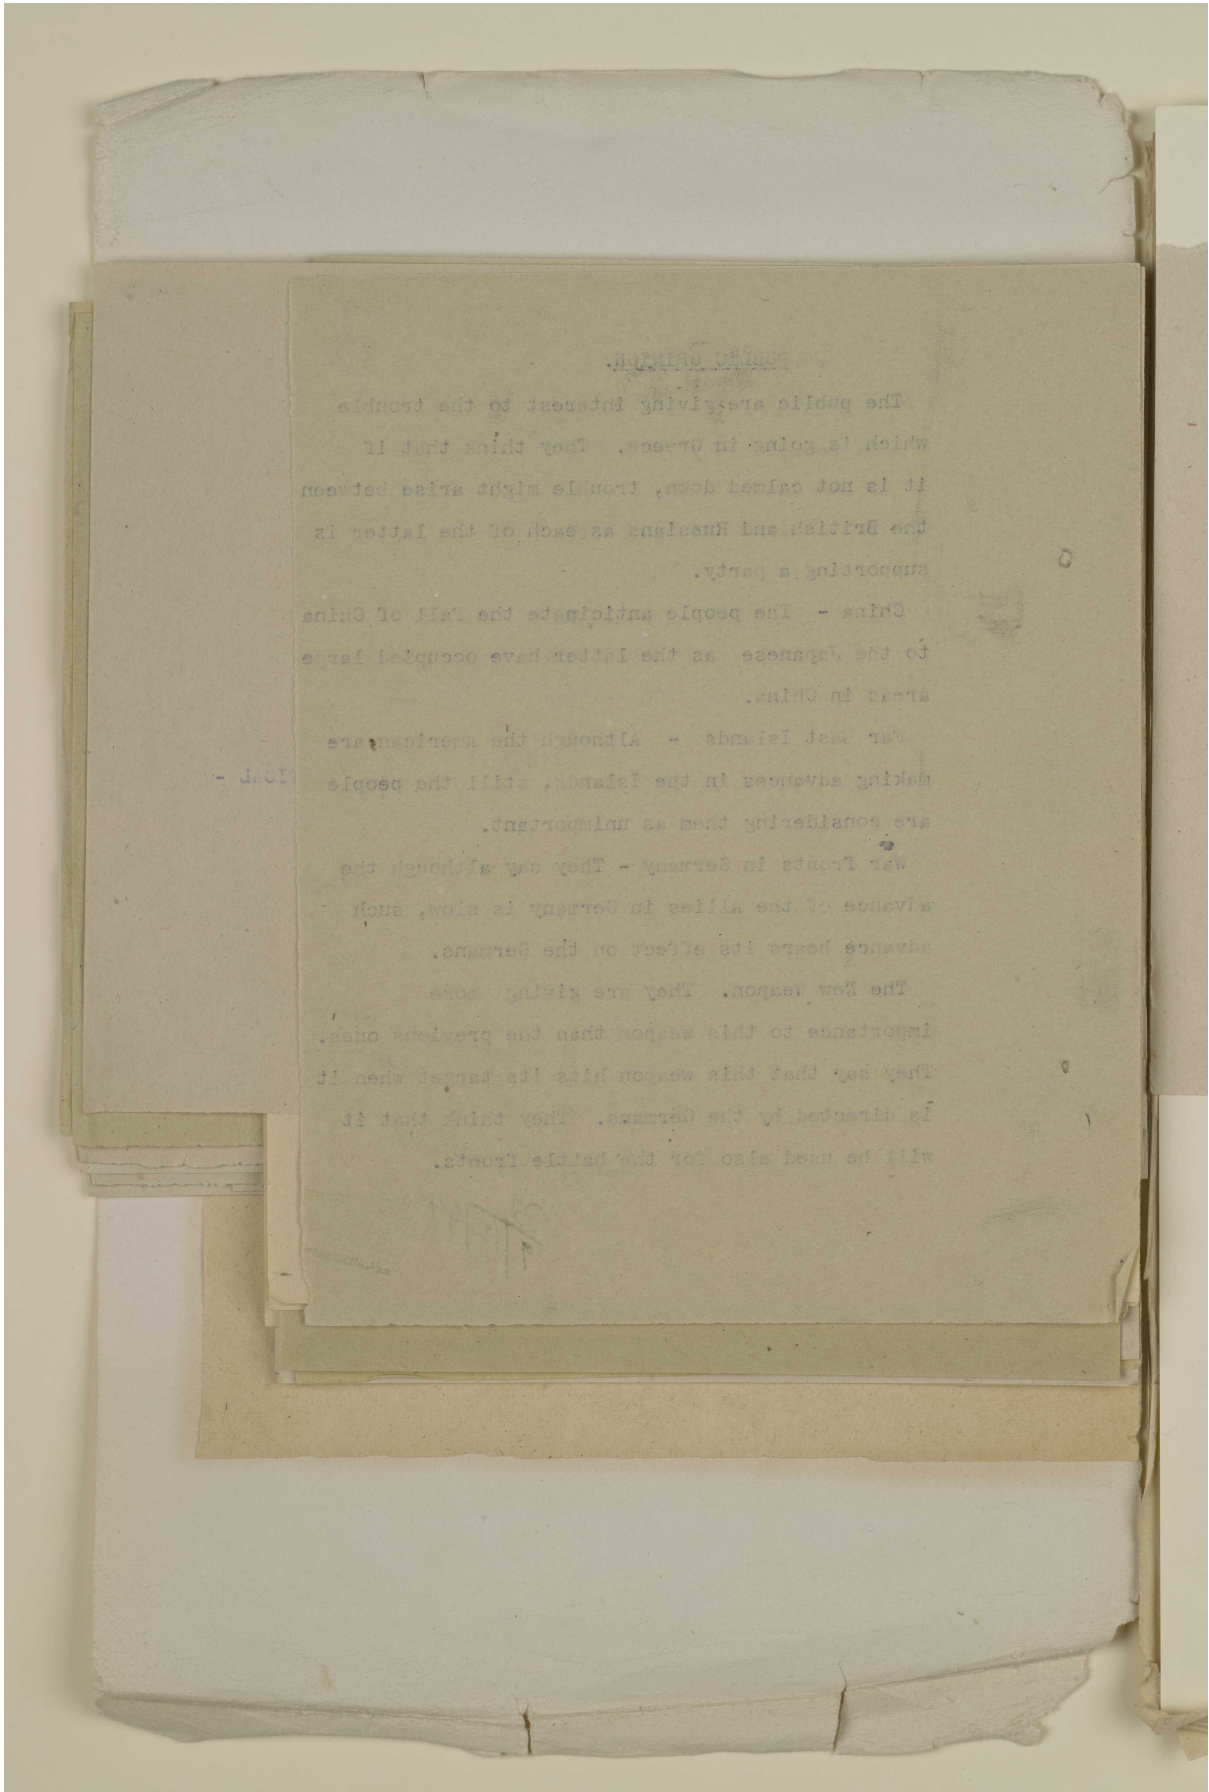 PUBLIC OPINION.
The public are giving interest to the trouble
which is going in Greece. They think that if
it is not calmed down, trouble might arise between
the British and Russians as each of the latter is
supporting a party.
China - The people anticipate the fall of China
to the Japanese as the latter have occupied large
areas in China.
Far East Islands - Although the American are
making advances in the Islands, still the people
are considering them as unimportant.
War fronts in Germany - They say although the
advance of the Allies in Germany is slow, such
advance bears its effect on the Germans.
The New Weapon. They are giving more
importance to this weapon than the previous ones.
They say that this weapon hits its target when it
is directed by the Germans. They think that it
will be used also for the battle fronts.
TICAL -